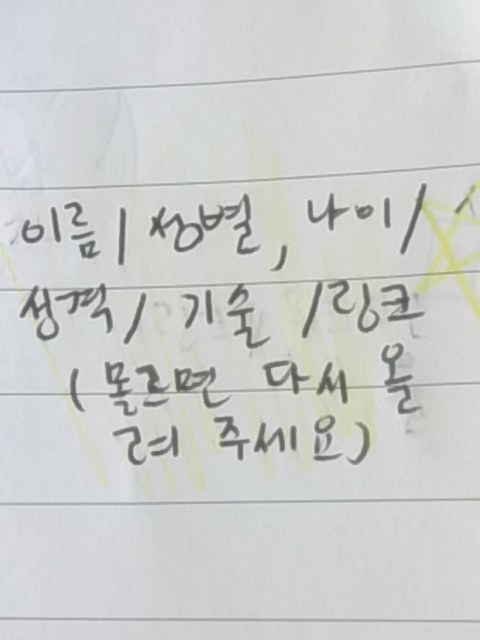 이름/성별, 나이/
성격/기술/링크
(몰르면 다시 올
려 주세요)